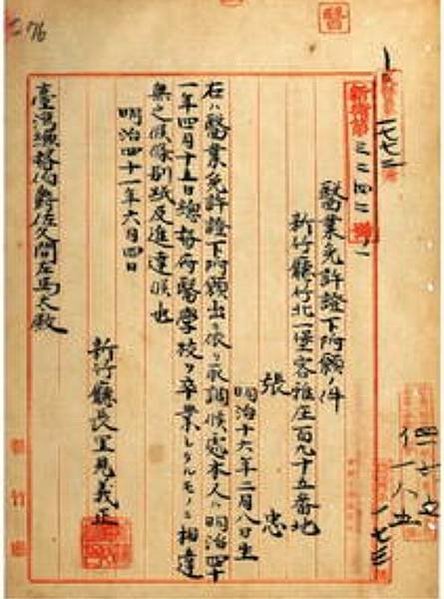 276
醫
新衛第三二四二號ノ一
醫業免許證下附願ノ件
新竹廳竹北一堡客雅庄百九十五番地
張 忠
明治十六年二月八日生
右ハ醫業免許證下附願出ニ依リ取調候處本人ハ明治四十
一年四月十五日總督府醫學校ヲ卒業シタルモノニ相違
無之候條別紙及進達候也
明治四十一年六月四日
新竹廳長里見義正
臺灣總督伯爵佐久間左馬太殿